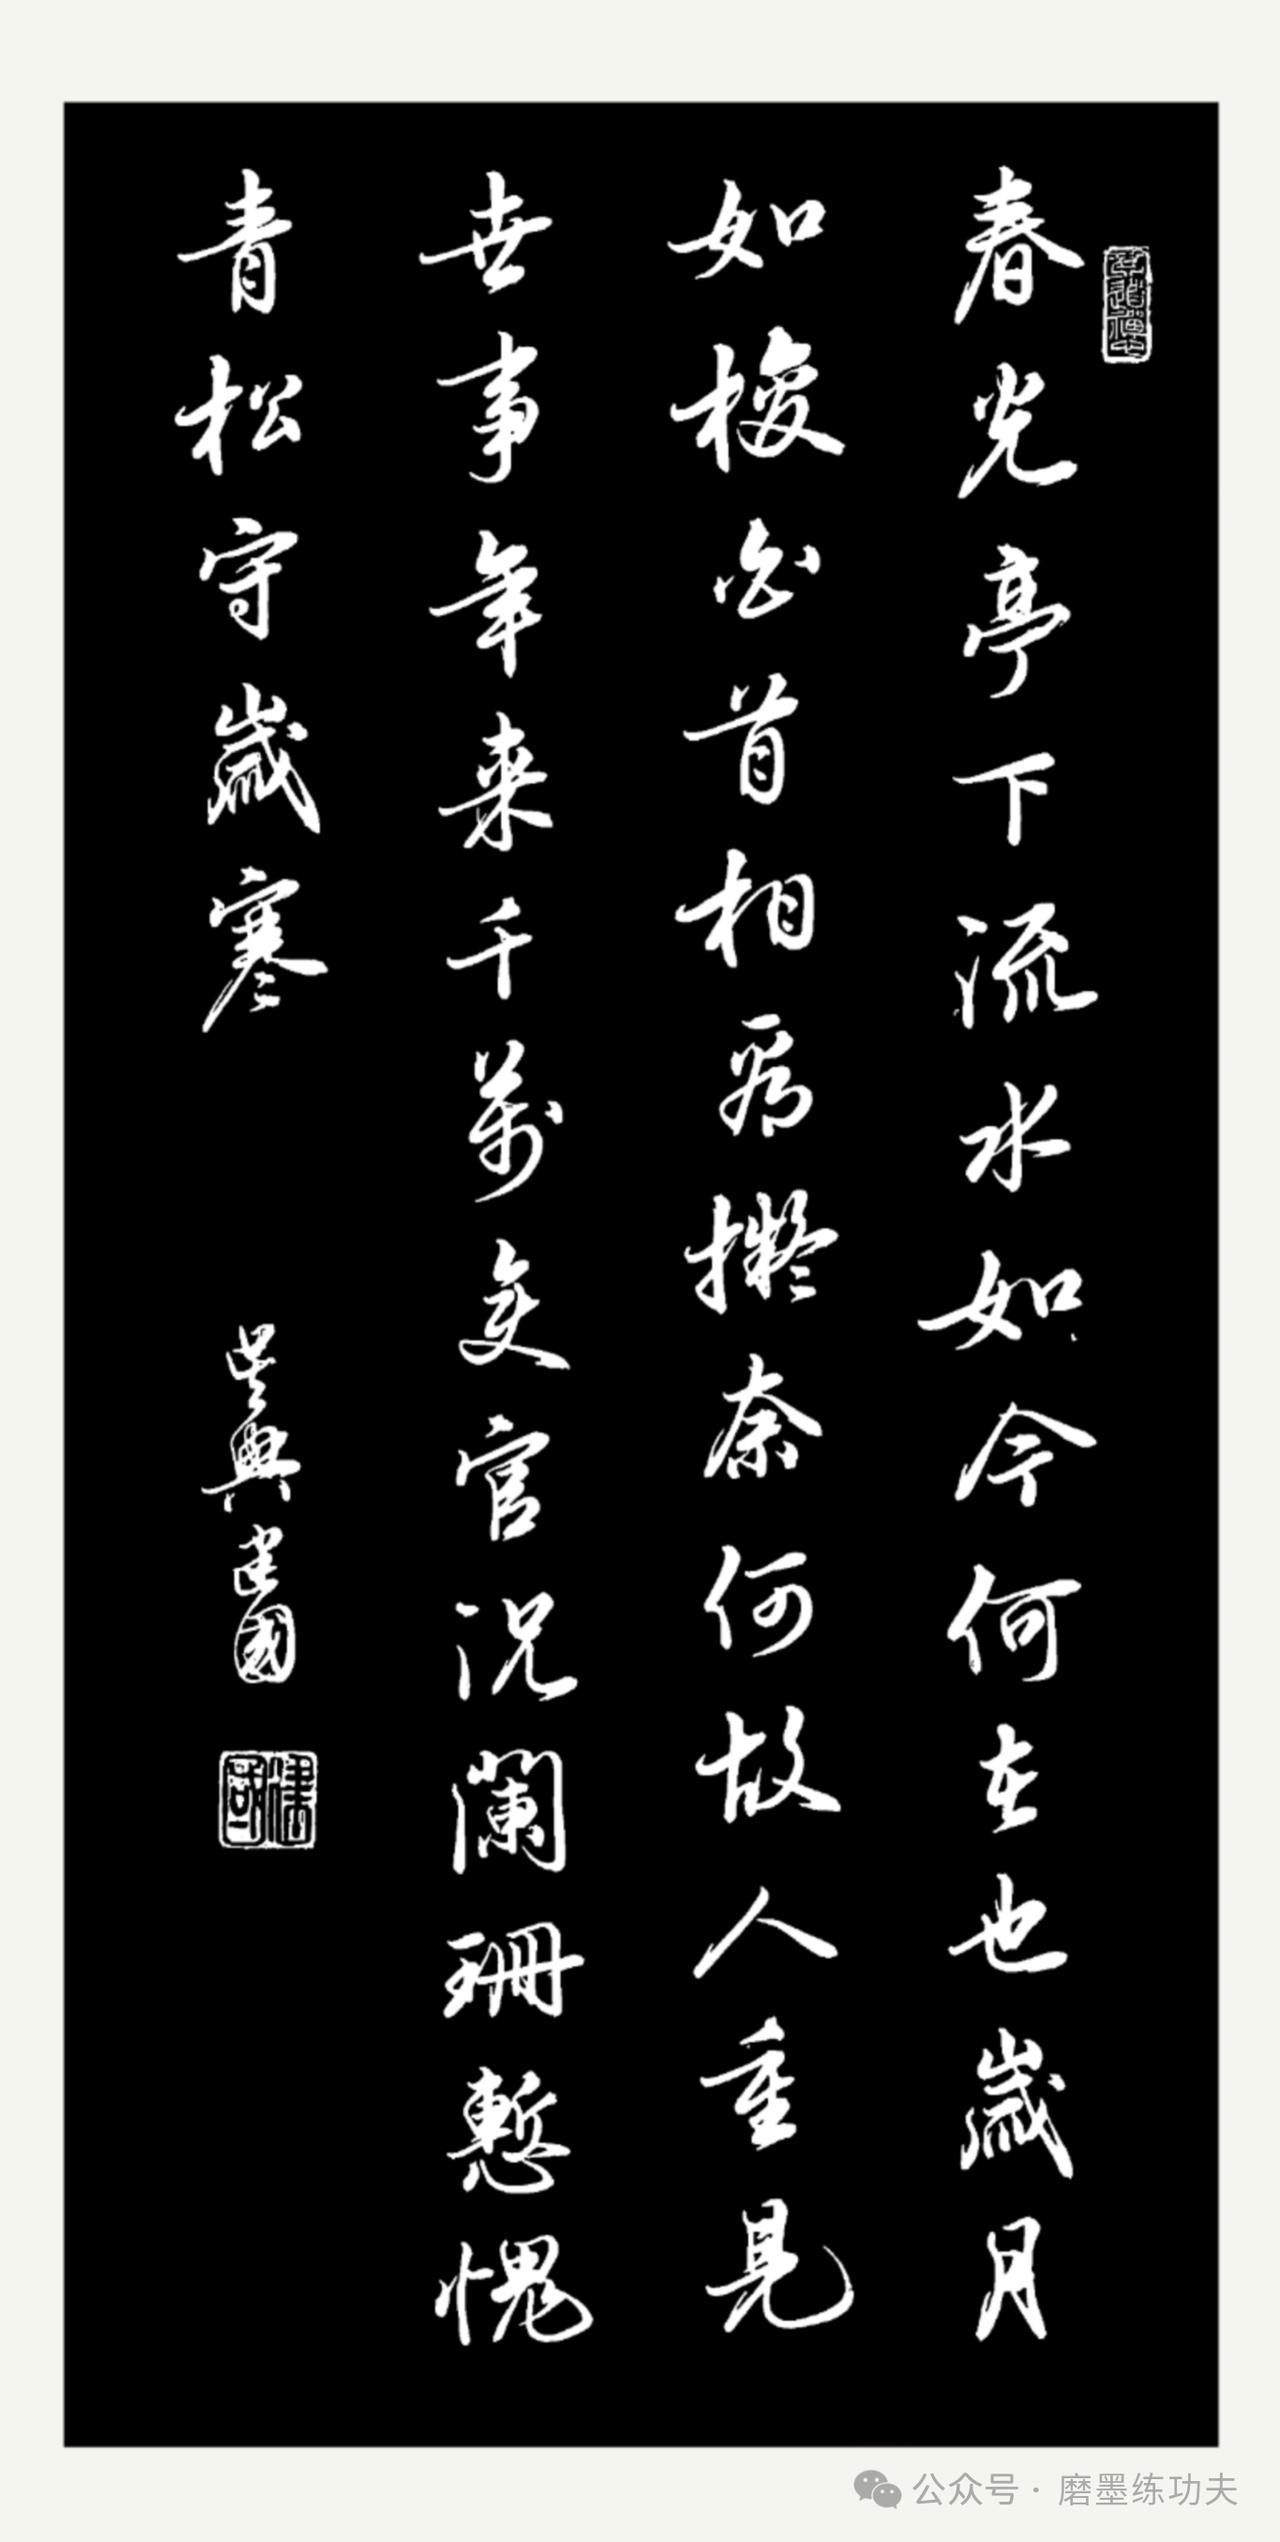 春光亭下流水如今何在也歲月
如梭白首相看擬奈何故人重見
世事年来千萬變官況闌珊慙愧
青松守歲寒
吳興建國
建國
公众号·磨墨练功夫